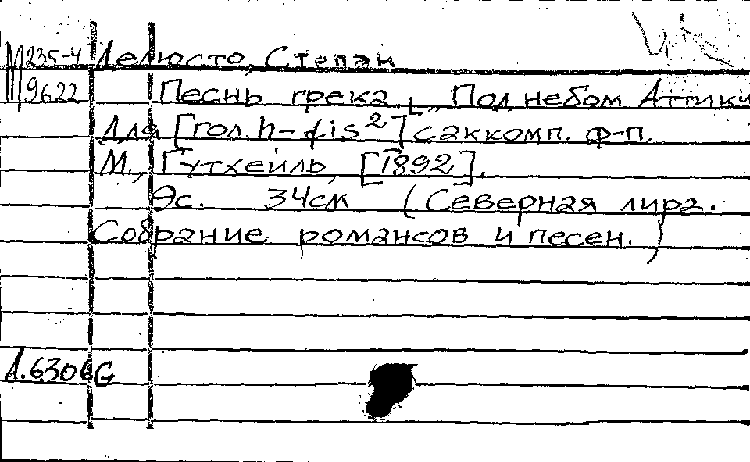 М235-4 Делюсто, Степан
9622 Песнь грека „Под небом Аттики
Для [гол. h-fis²] с аккомп. ф-п.
М., Гутхейль, [1892].
Эс. 34см (Северная лира.
Собрание романсов и песен.)
Д.6306G